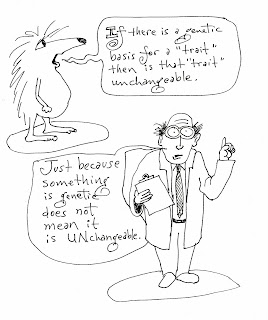 If there is a genetic
basis for a "trait"
then is that "trait"
unchangeable.
Just because
something
is genetic
does not
mean it
is UNchangeable.